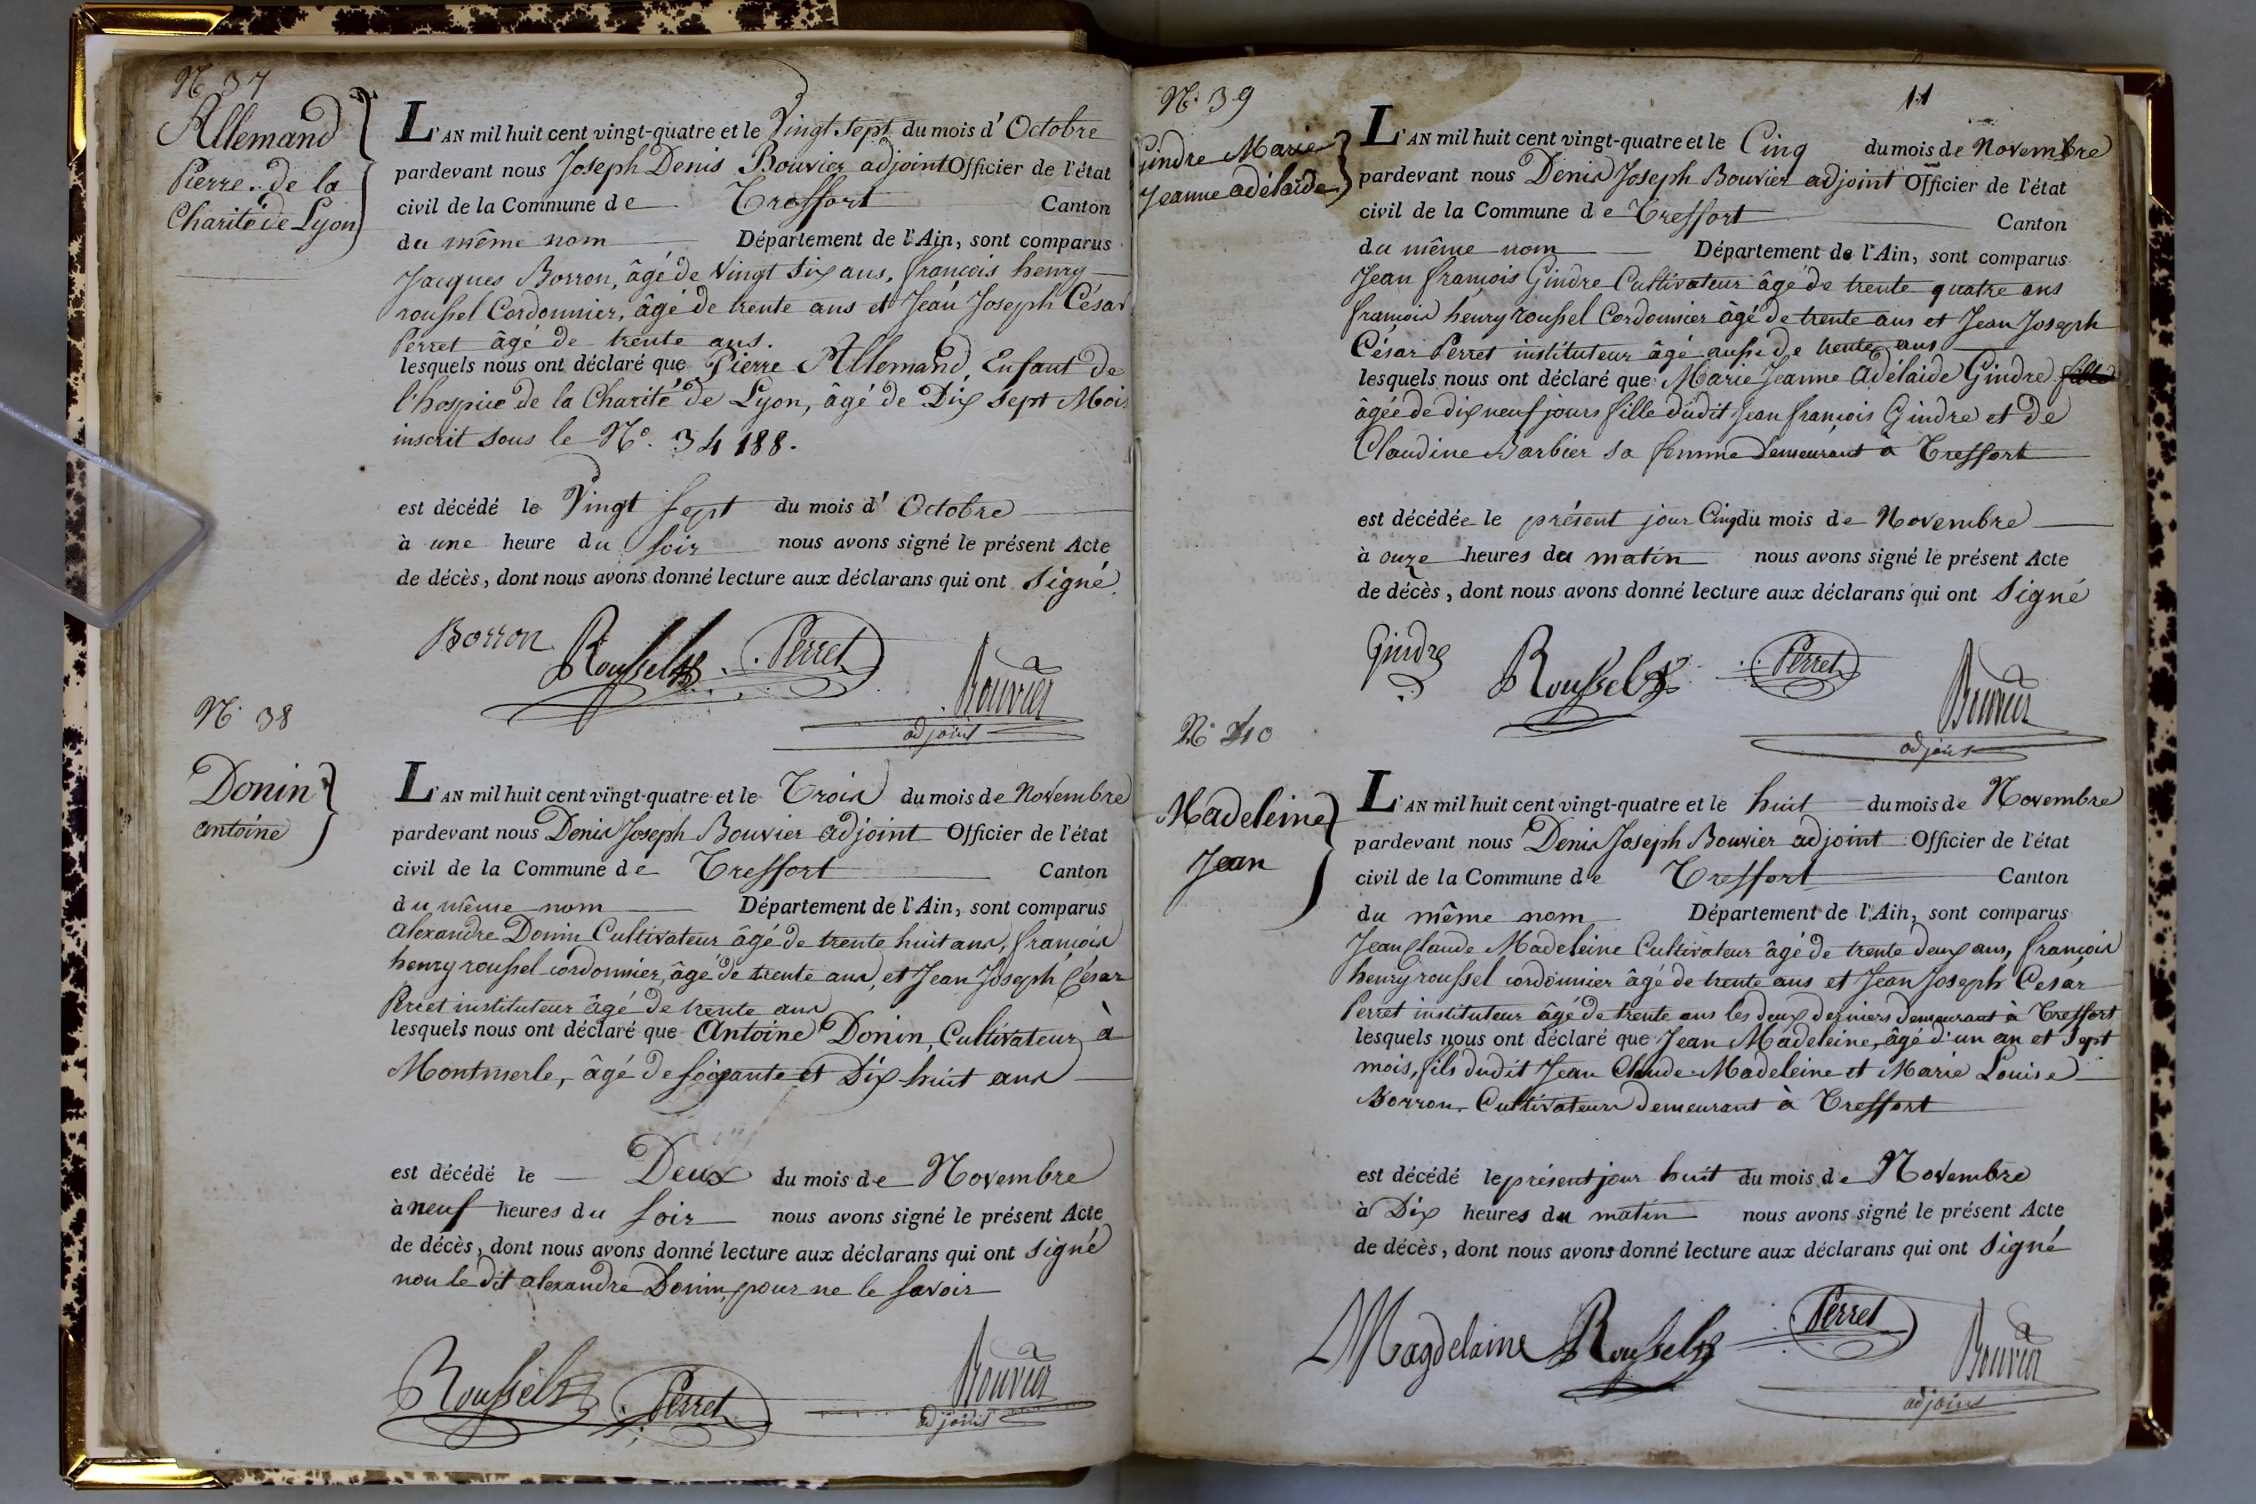 N. 37
Allemand
Pierre. de la
Charité de Lyon
L'AN mil huit cent vingt-quatre et le Vingt sept du mois d' Octobre
pardevant nous Joseph Denis Bouvier adjoint Officier de l'état
civil de la Commune de Treffort Canton
du même nom Département de l'Ain, sont comparus
Jacques Borron, âgé de Vingt six ans, françois henry
roussel Cordonnier, âgé de trente ans et Jean Joseph César
Perret âgé de trente ans.
lesquels nous ont déclaré que Pierre Allemand, Enfant de
l'hospice de la Charité de Lyon, âgé de Dix sept Mois
inscrit sous le N°. 34188.
est décédé le Vingt sept du mois d' Octobre
à une heure du soir nous avons signé le présent Acte
de décès, dont nous avons donné lecture aux déclarans qui ont signé.
Borron Roussel Perret Bouvier
adjoint
N. 38
Donin
antoine
L'AN mil huit cent vingt-quatre et le Trois du mois de Novembre
pardevant nous Denis Joseph Bouvier adjoint Officier de l'état
civil de la Commune de Treffort Canton
du même nom Département de l'Ain, sont comparus
alexandre Donin Cultivateur âgé de trente huit ans, françois
henry roussel cordonnier, âgé de trente ans, et Jean Joseph César
Perret instituteur âgé de trente ans
lesquels nous ont déclaré que Antoine Donin, Cultivateur à
Montmerle, âgé de soixante et Dix huit ans
est décédé le Deux du mois de Novembre
à neuf heures du soir nous avons signé le présent Acte
de décès, dont nous avons donné lecture aux déclarans qui ont signé
non le dit alexandre Donin, pour ne le savoir
Roussel Perret Bouvier
adjoint
11
N. 39
Gindre Marie
Jeanne adélaide
L'AN mil huit cent vingt-quatre et le Cinq du mois de Novembre
pardevant nous Denis Joseph Bouvier adjoint Officier de l'état
civil de la Commune de Treffort Canton
du même nom Département de l'Ain, sont comparus
Jean françois Gindre Cultivateur âgé de trente quatre ans
françois henry roussel Cordonnier âgé de trente ans et Jean Joseph
César Perret instituteur âgé aussi de trente ans
lesquels nous ont déclaré que Marie Jeanne Adélaide Gindre fille
âgée de dix neuf jours fille dudit Jean françois Gindre et de
Claudine Barbier sa femme Demeurant à Treffort
est décédée le présent jour Cinq du mois de Novembre
à onze heures du matin nous avons signé le présent Acte
de décès, dont nous avons donné lecture aux déclarans qui ont signé
Gindre Roussel Perret Bouvier
adjoint
N. 40
Madeleine
Jean
L'AN mil huit cent vingt-quatre et le huit du mois de Novembre
pardevant nous Denis Joseph Bouvier adjoint Officier de l'état
civil de la Commune de Treffort Canton
du même nom Département de l'Ain, sont comparus
Jean Claude Madeleine Cultivateur âgé de trente deux ans, françois
henry roussel cordonnier âgé de trente ans et Jean Joseph Cesar
Perret instituteur âgé de trente ans les deux derniers demeurant à Treffort
lesquels nous ont déclaré que Jean Madeleine, âgé d'un an et sept
mois, fils dudit Jean Claude Madeleine et Marie Louise
Borron, Cultivateurs Demeurant à Treffort
est décédé le présent jour huit du mois de Novembre
à Dix heures du matin nous avons signé le présent Acte
de décès, dont nous avons donné lecture aux déclarans qui ont signé
Magdelaine Roussel Perret Bouvier
adjoint